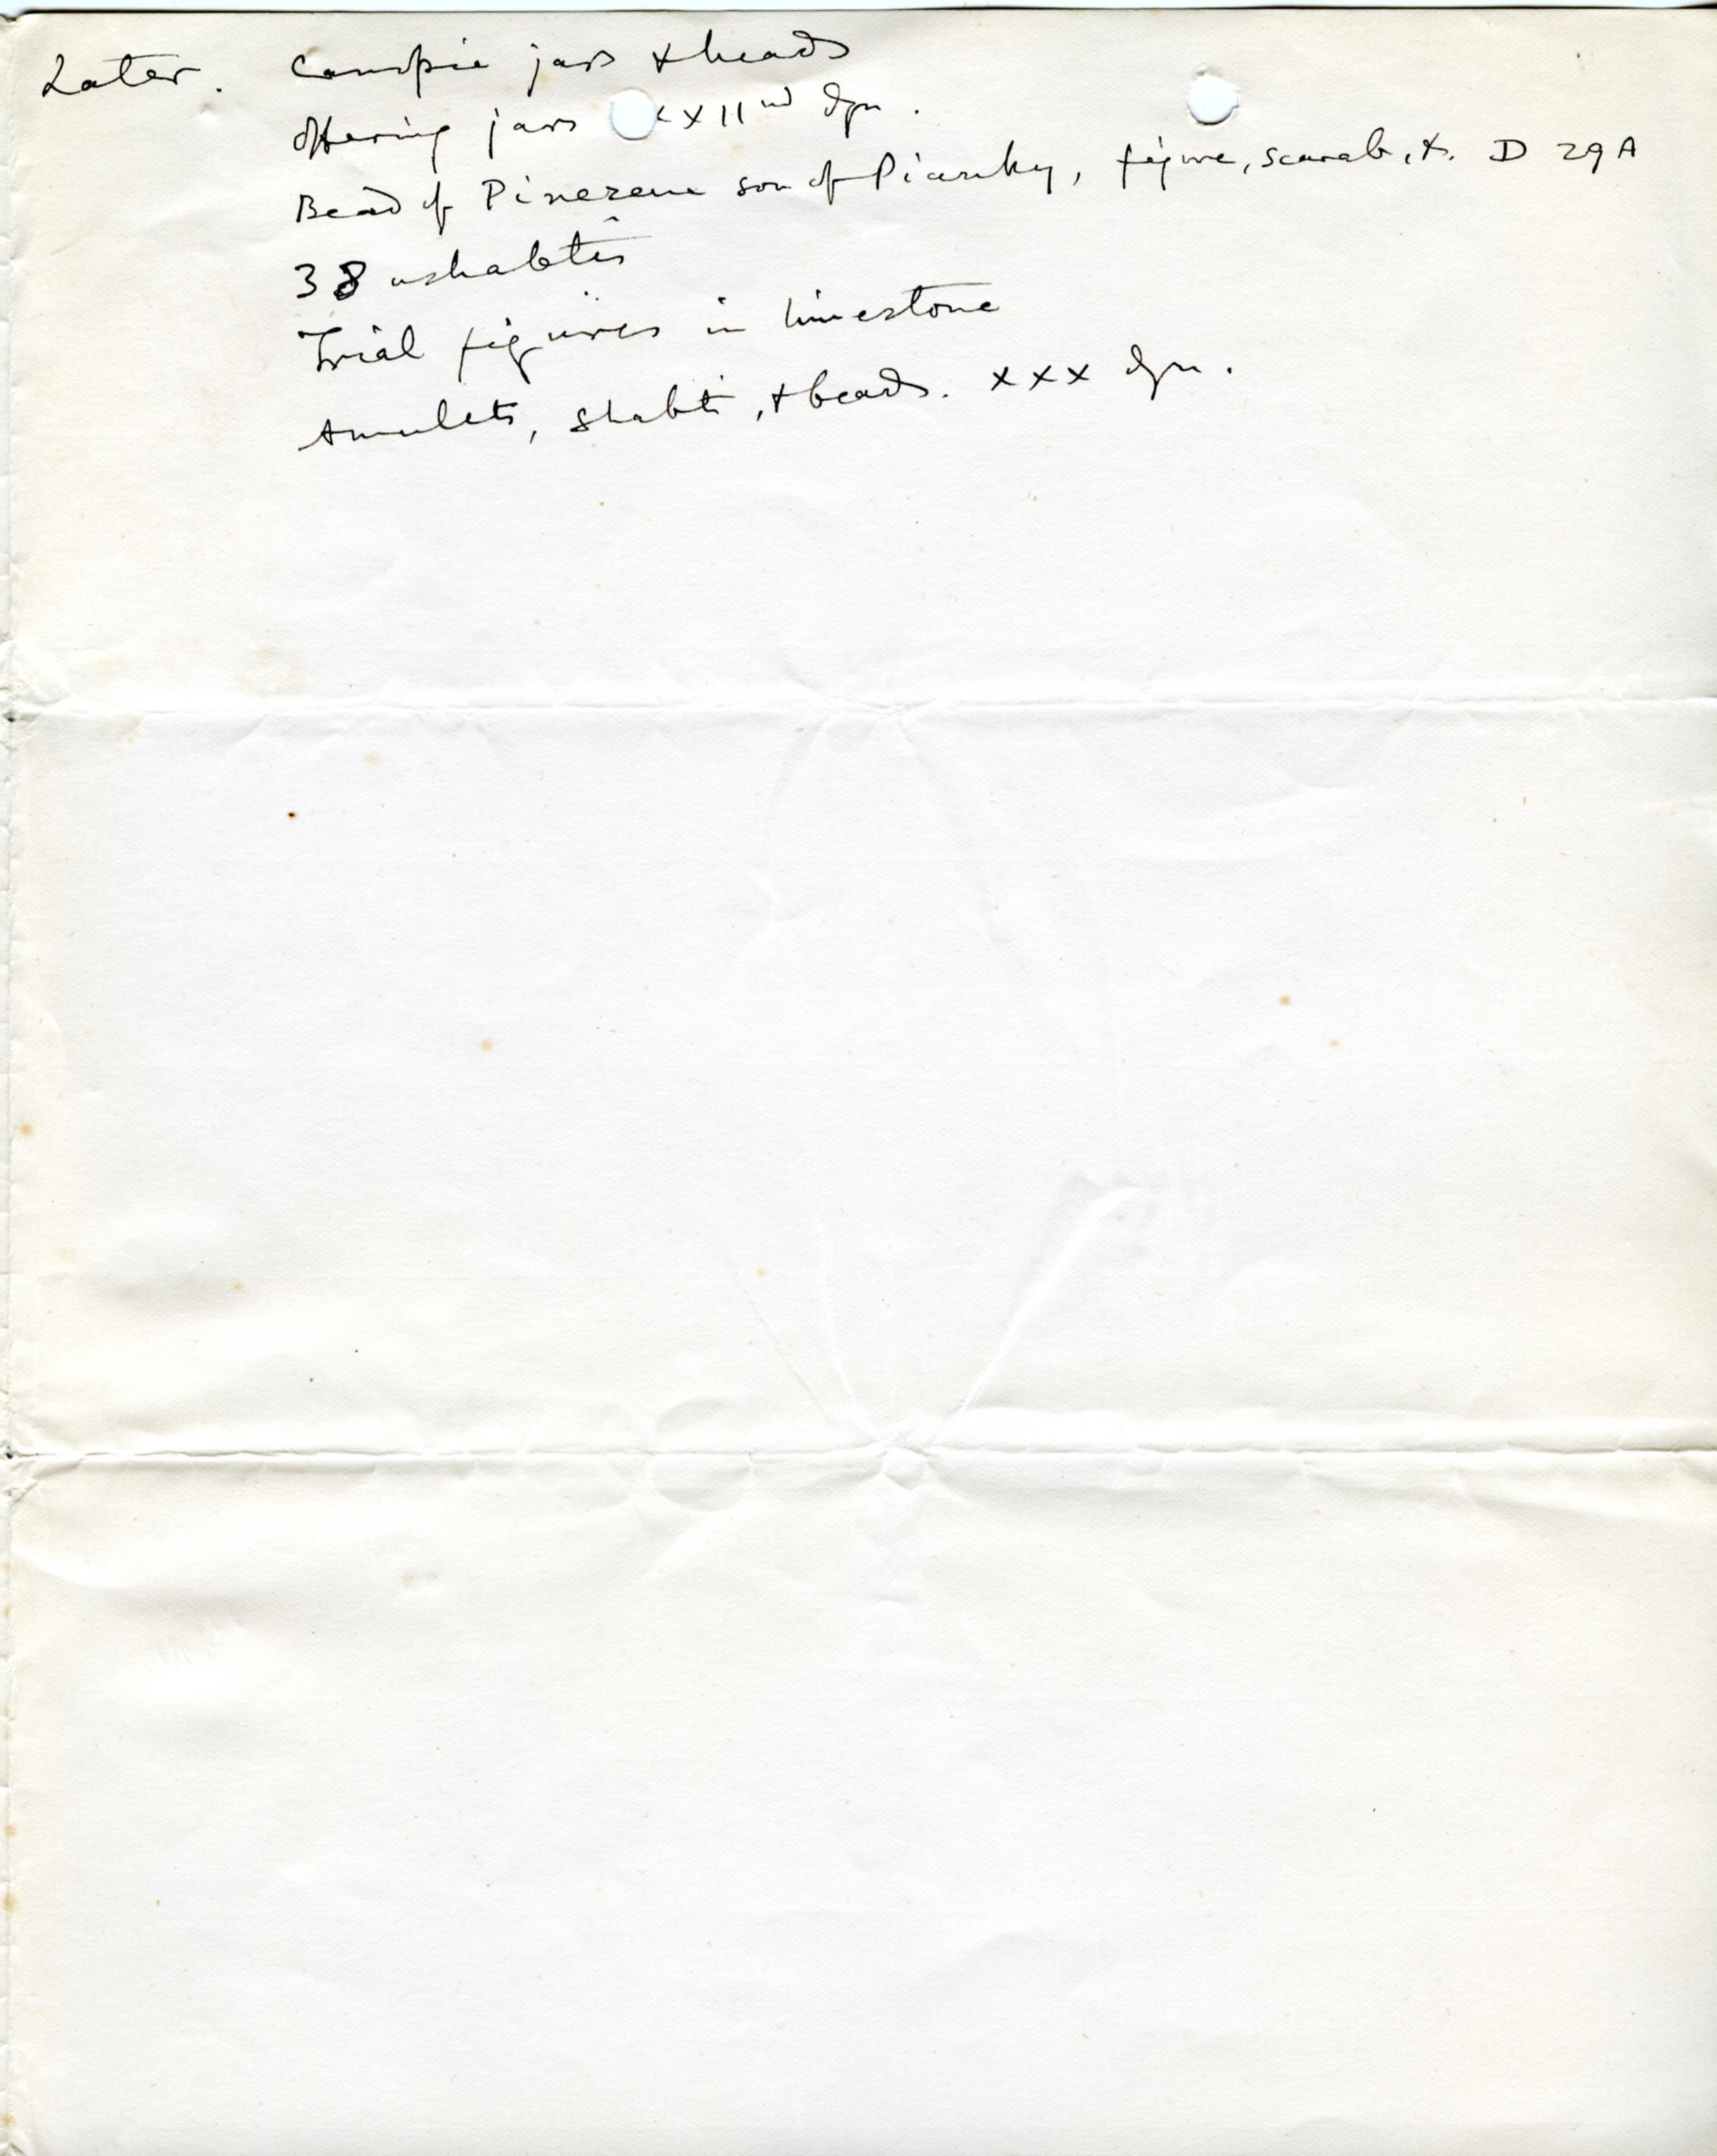 Later. Canopic jars & heads
Offering jars XXIInd dyn.
Bead of Pinezem son of Piankhy, figure, scarab, &. D 29A
38 ushabtis
Trial figures in limestone
Amulets, shabti, & beads. XXX dyn.